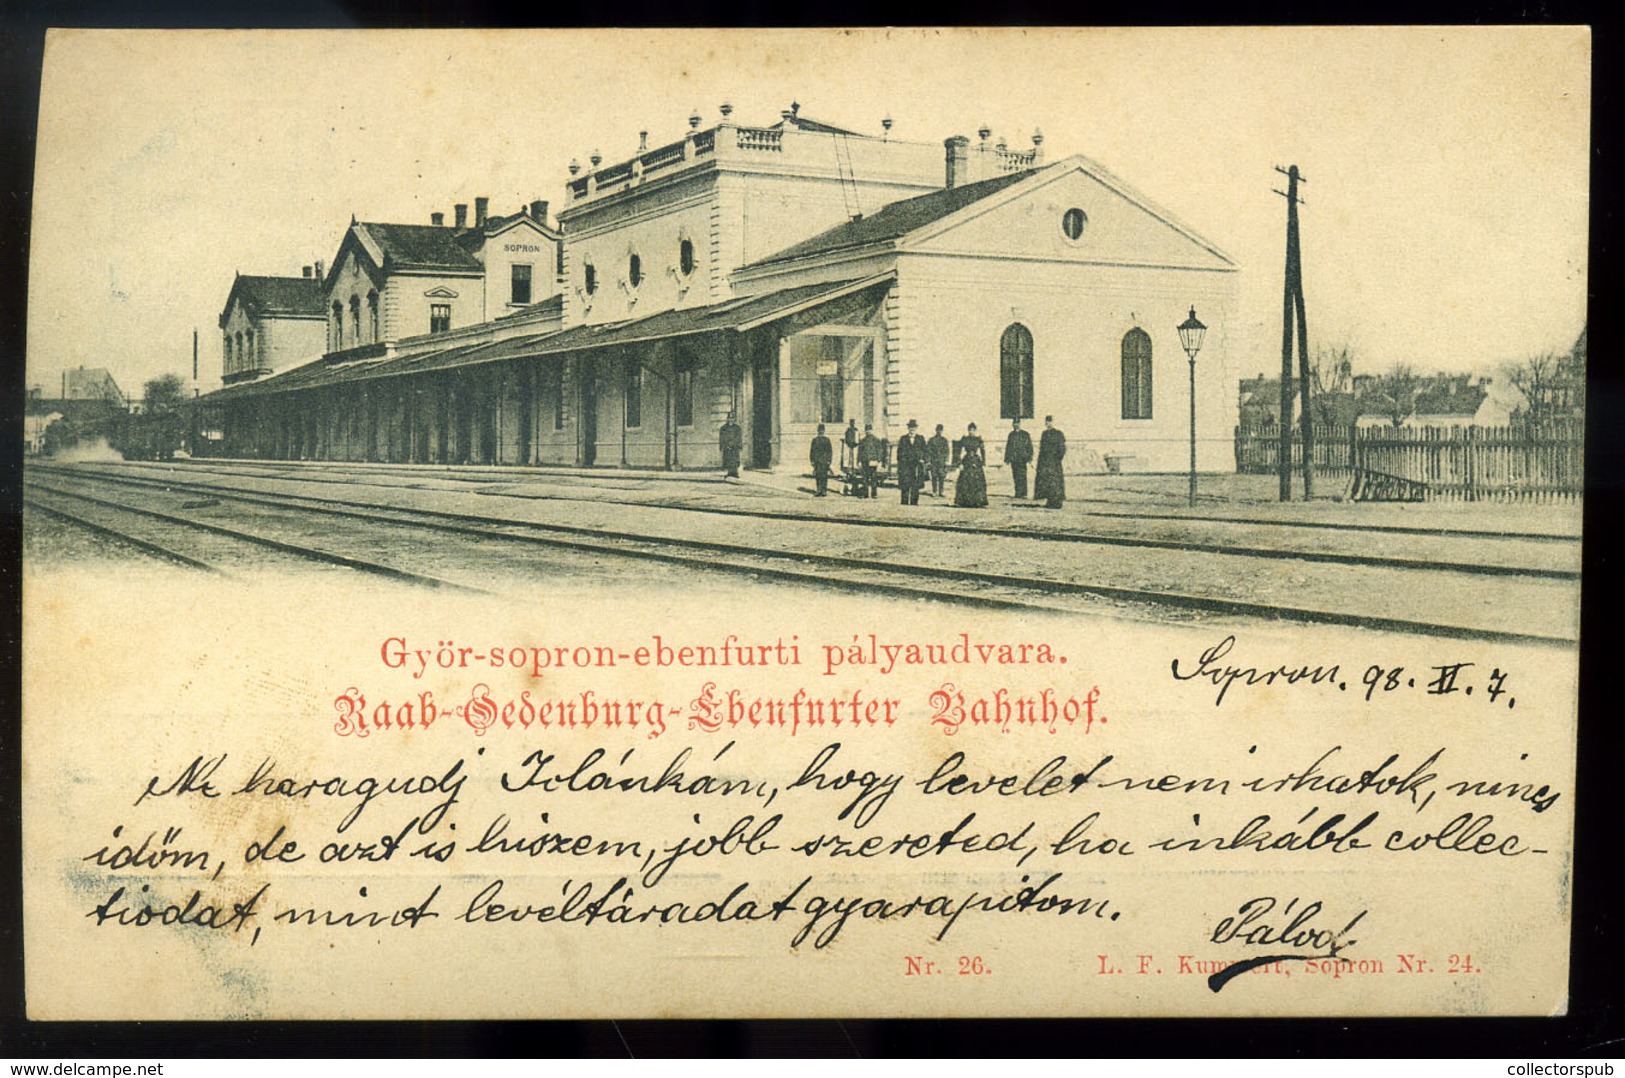 SOPRON
Györ-sopron-ebenfurti pályaudvara.
Raab-Oedenburg-Ebenfurter Bahnhof.
Sopron. 98. II. 7.
Ne haragudj Ilonkám, hogy levelet nem irhatok, nincs
időm, de azt is hiszem, jobb szereted, ha inkább collec-
tiodat, mint levéltáradat gyarapitom.
Pálod
Nr. 26.
L. F. Kummert, Sopron Nr. 24.
© collectorspub